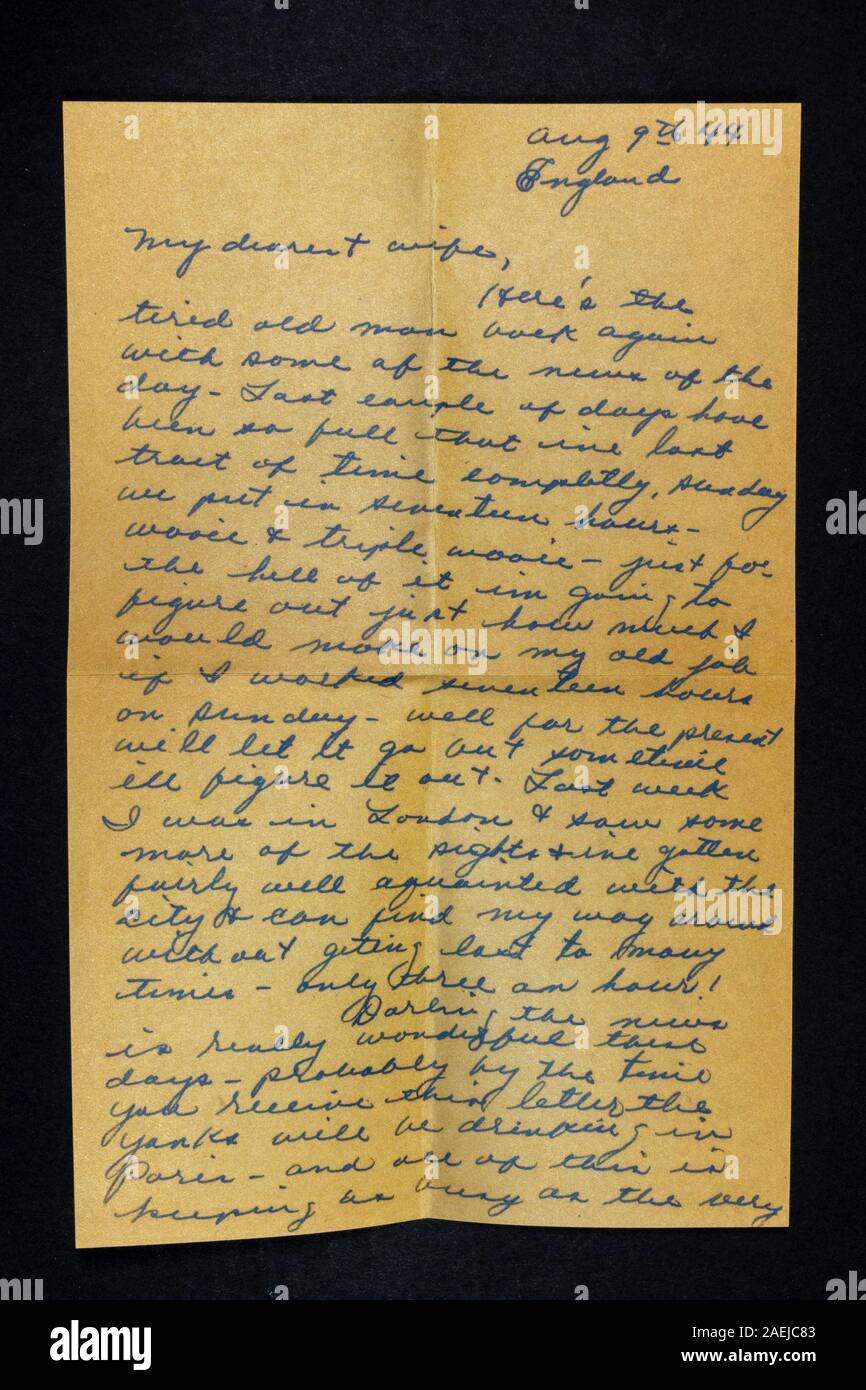 Aug 9th 44
England
My dearest wife,
Here's the
tired old man back again
with some of the news of the
day - Last couple of days have
been so full that ive lost
tract of time completly, sunday
we put in seventeen hours -
wooie & triple wooie - just for
the hell of it im going to
figure out just how much I
would make on my old job
if I worked seventeen hours
on sunday - well for the present
we'll let it go but sometime
ill figure it out. Last week
I was in London & saw some
more of the sights & ive gotten
fairly well aquainted with the
city & can find my way around
without geting lost to many
times - only three an hour!
Darling the news
is really wonderful these
days - probably by the time
you receive this letter the
yanks will be drinking in
Paris - and all of this is
keeping us busy as the very
alamy
Image ID: 2AEJC83
www.alamy.com